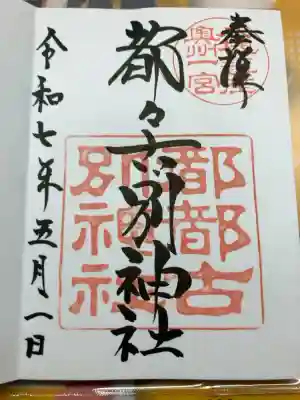 奉拝
奥州一宮
都々古別神社
都都古
別神社
令和七年五月一日